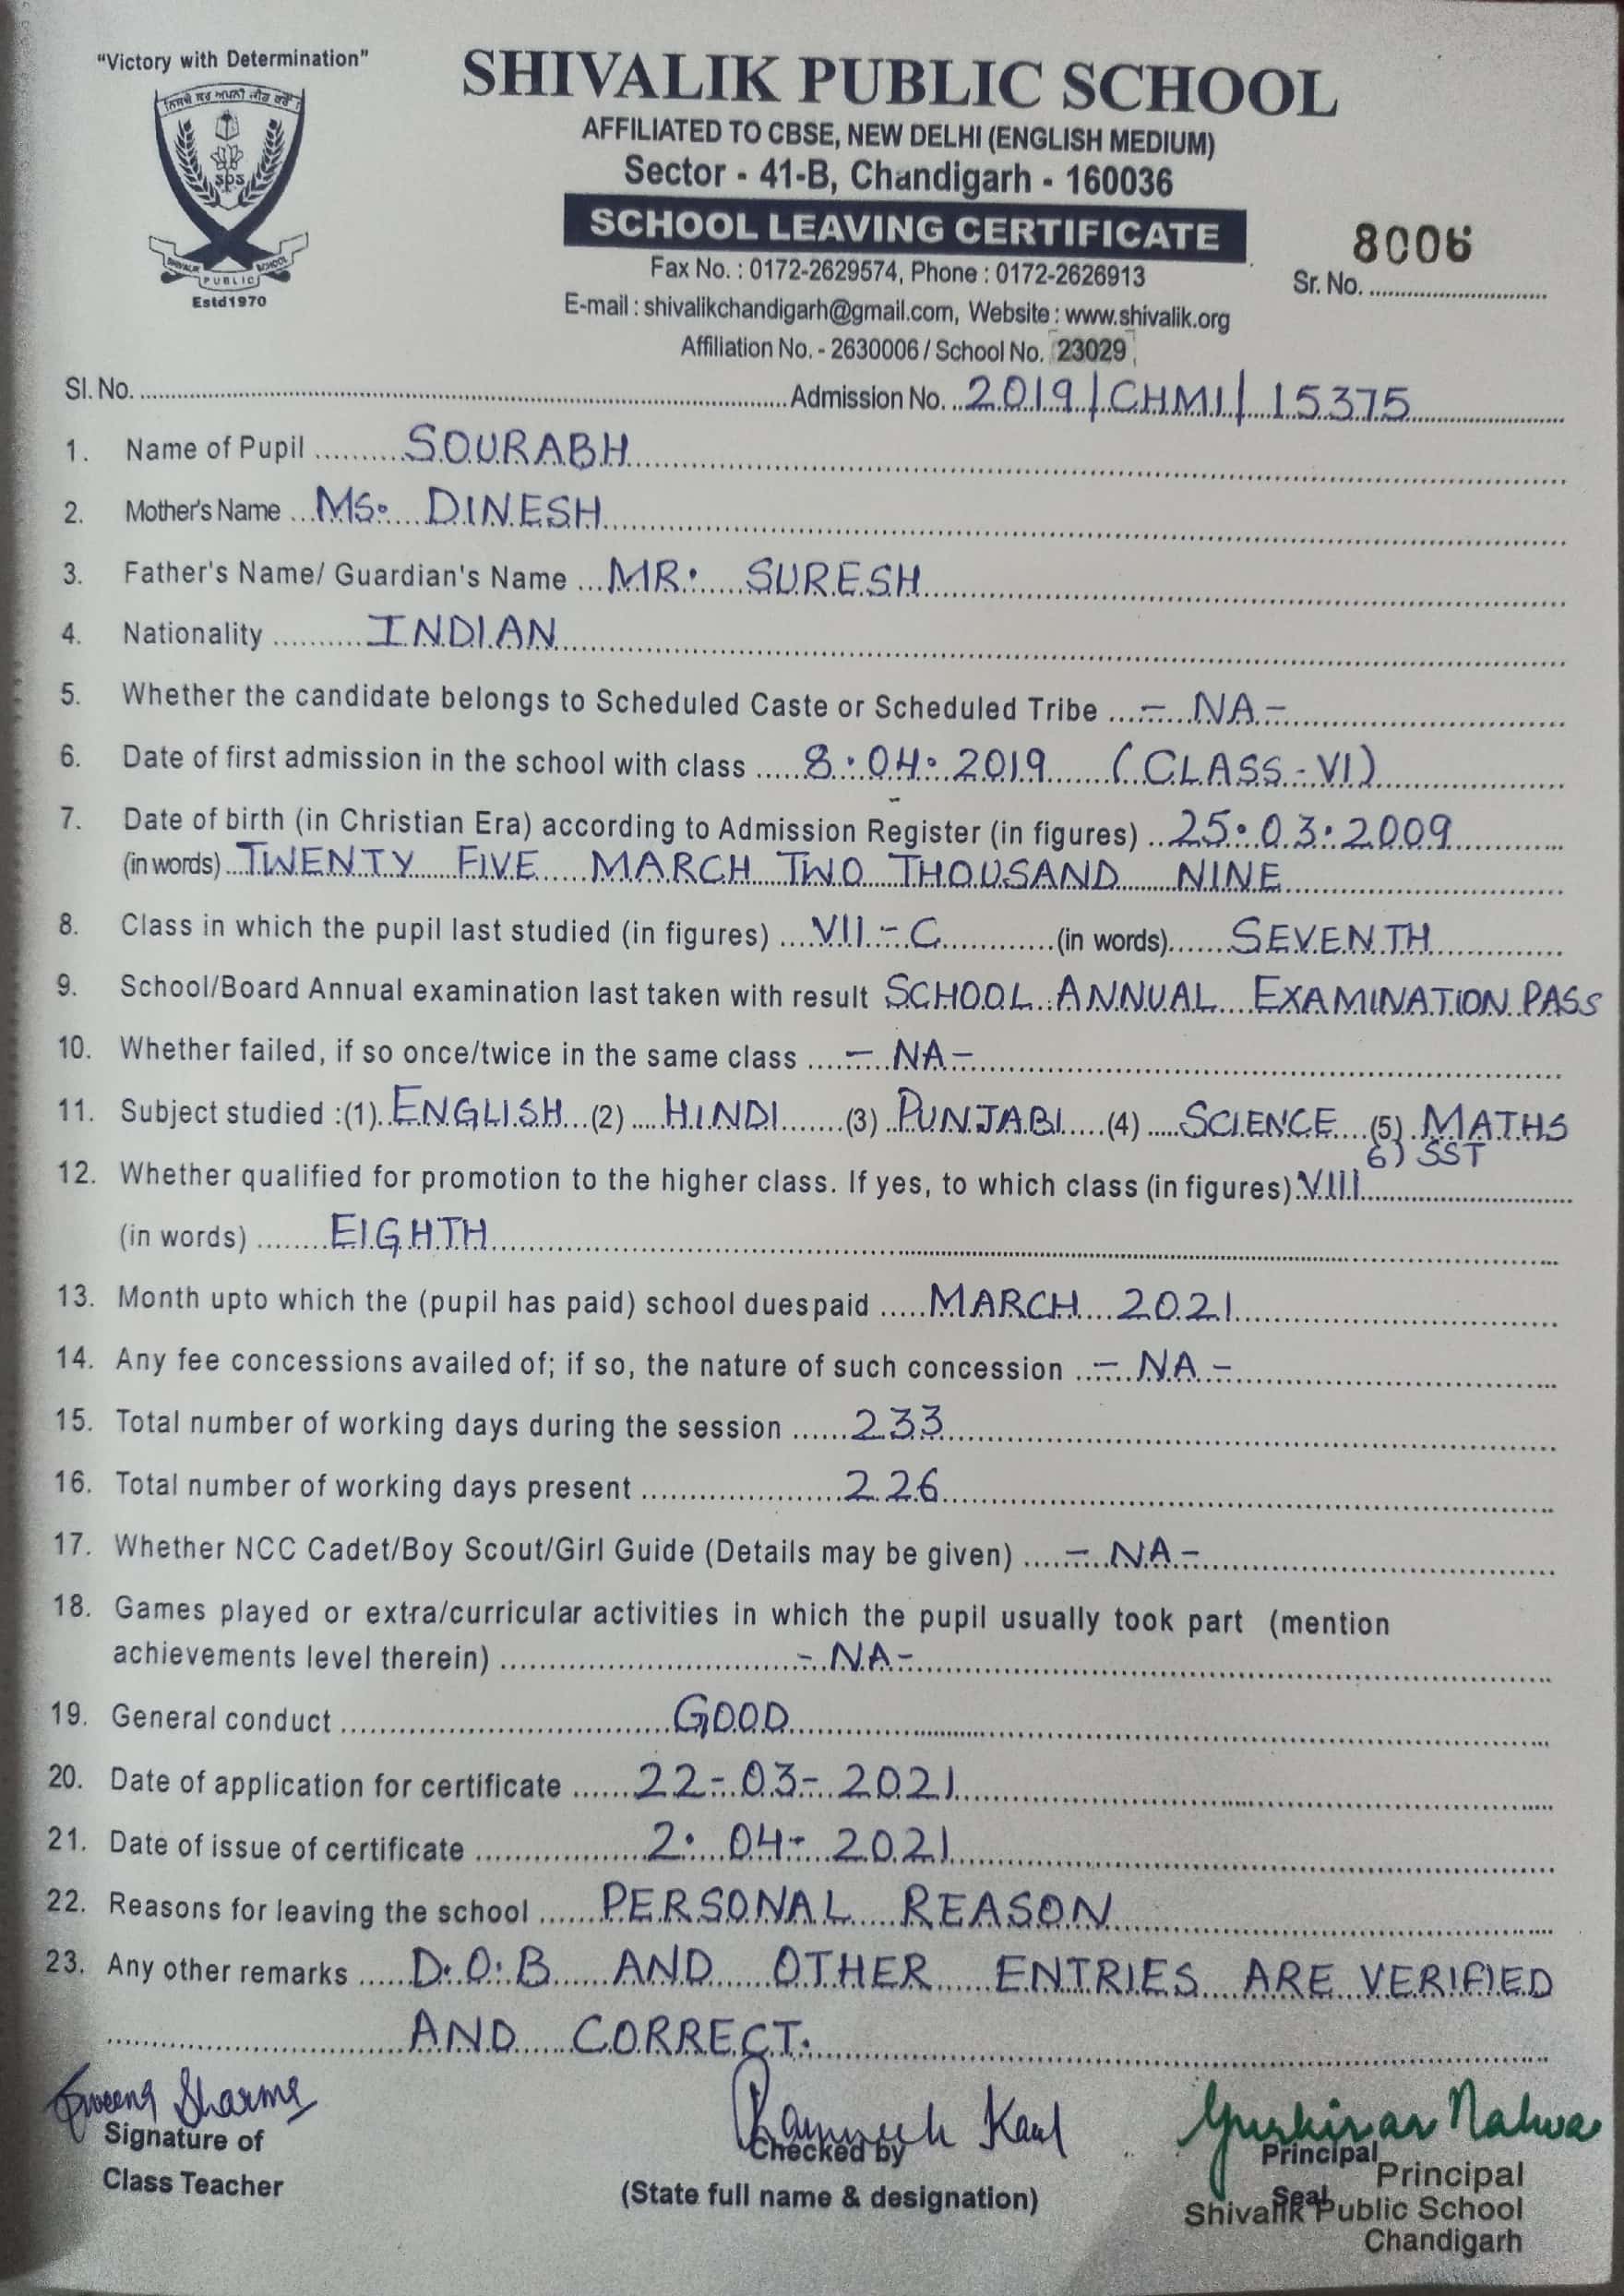 "Victory with Determination"
SHIVALIK PUBLIC SCHOOL
AFFILIATED TO CBSE, NEW DELHI (ENGLISH MEDIUM)
Sector - 41-B, Chandigarh - 160036
SCHOOL LEAVING CERTIFICATE
sps
SHIVALIK PUBLIC SCHOOL
Estd1970
8006
Fax No. : 0172-2629574, Phone : 0172-2626913
Sr. No.
E-mail : shivalikchandigarh@gmail.com, Website : www.shivalik.org
Affiliation No. - 2630006 / School No. 23029
Sl. No. Admission No. 2019/CHMI/15375
1. Name of Pupil SOURABH
2. Mother's Name MS. DINESH
3. Father's Name/ Guardian's Name MR. SURESH
4. Nationality INDIAN
5. Whether the candidate belongs to Scheduled Caste or Scheduled Tribe - NA -
6. Date of first admission in the school with class 8.04.2019 (CLASS-VI)
7. Date of birth (in Christian Era) according to Admission Register (in figures) 25.03.2009
(in words) TWENTY FIVE MARCH TWO THOUSAND NINE
8. Class in which the pupil last studied (in figures) VII - C (in words) SEVENTH
9. School/Board Annual examination last taken with result SCHOOL ANNUAL EXAMINATION PASS
10. Whether failed, if so once/twice in the same class - NA -
11. Subject studied :(1) ENGLISH (2) HINDI (3) PUNJABI (4) SCIENCE (5) MATHS
6) SST
12. Whether qualified for promotion to the higher class. If yes, to which class (in figures) VIII
(in words) EIGHTH
13. Month upto which the (pupil has paid) school duespaid MARCH 2021
14. Any fee concessions availed of; if so, the nature of such concession - NA -
15. Total number of working days during the session 233
16. Total number of working days present 226
17. Whether NCC Cadet/Boy Scout/Girl Guide (Details may be given) - NA -
18. Games played or extra/curricular activities in which the pupil usually took part (mention
achievements level therein) - NA -
19. General conduct GOOD
20. Date of application for certificate 22-03-2021
21. Date of issue of certificate 2.04-2021
22. Reasons for leaving the school PERSONAL REASON
23. Any other remarks D.O.B AND OTHER ENTRIES ARE VERIFIED
AND CORRECT.
Sharma Kaul Gurkiran Nalwa
Signature of Checked by Principal
Class Teacher (State full name & designation) Seal
Principal
Shivalik Public School
Chandigarh